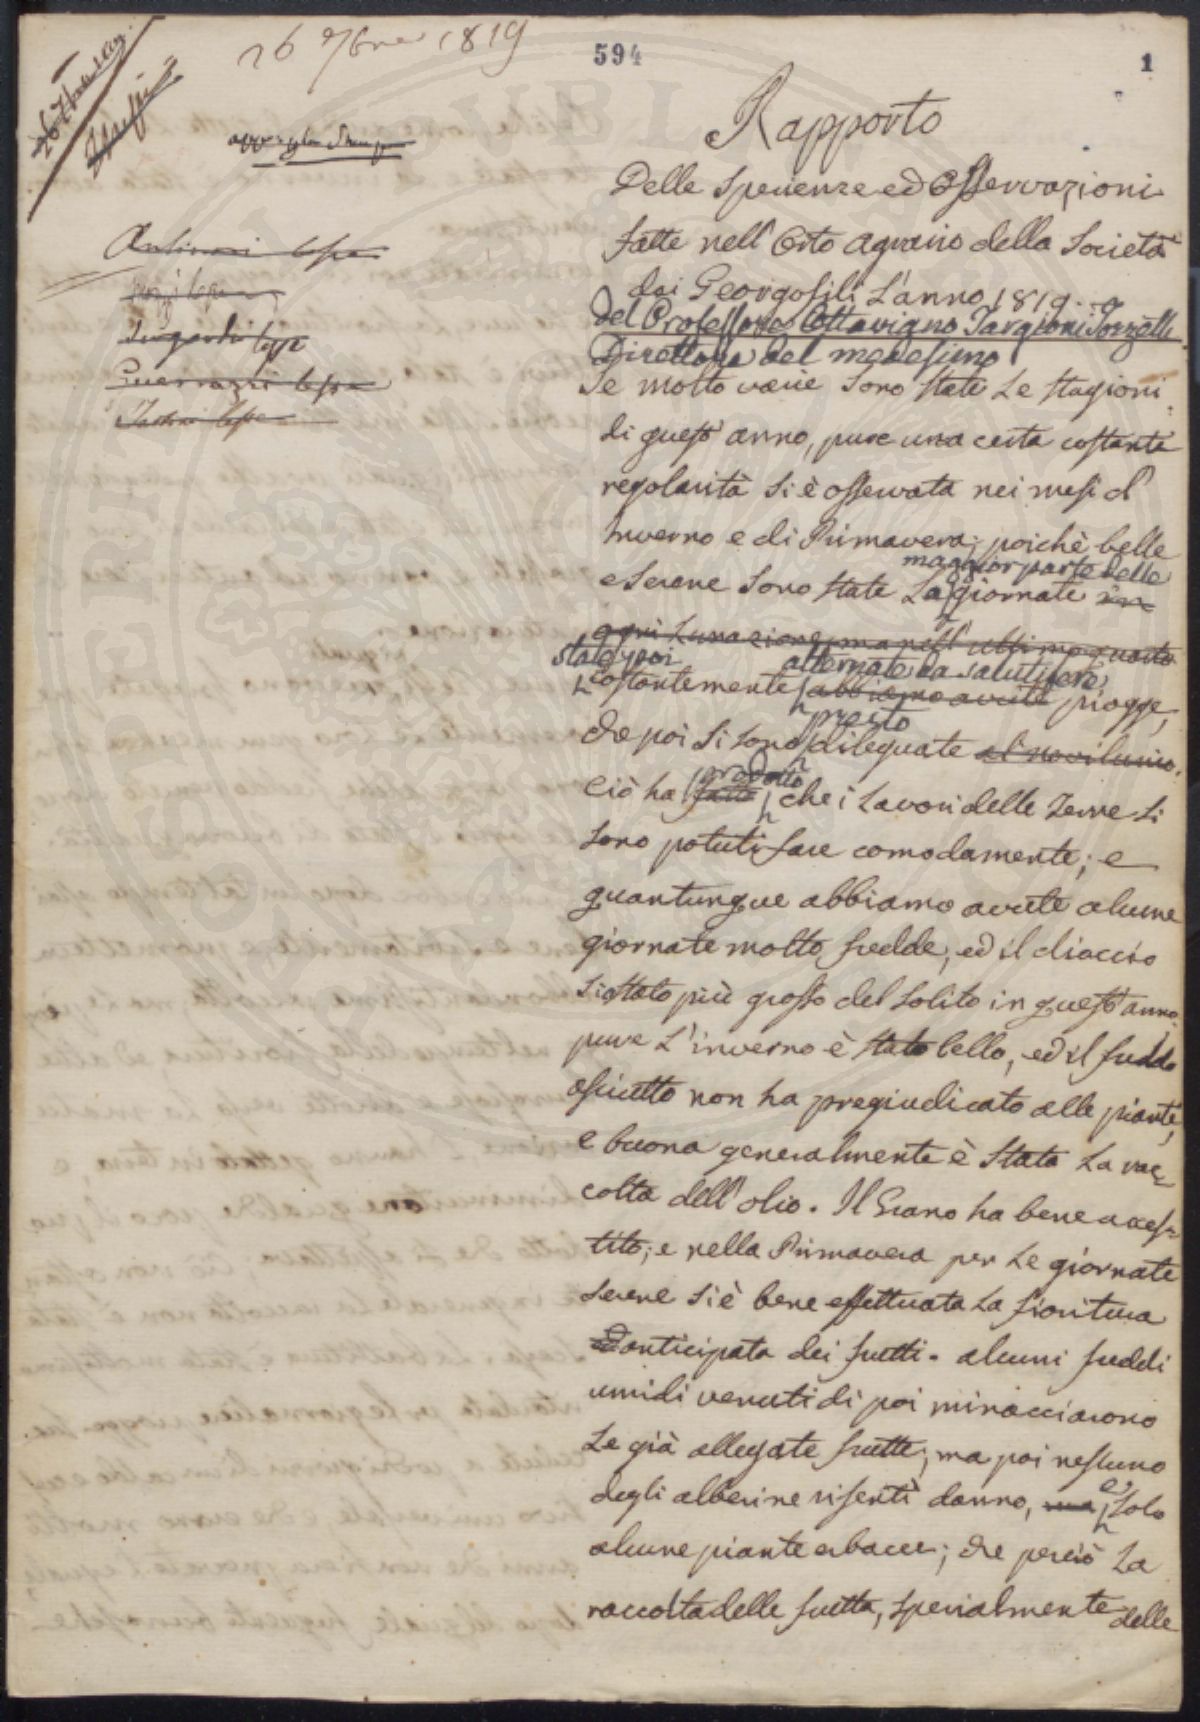 26 7bre 1819
594
1
Rapporto
Delle Sperienze ed Osservazioni
fatte nell' Orto agrario della Società
dei Georgofili L'anno 1819.
del Professore Ottaviano Targioni Tozzetti
Direttore del medesimo
Se molto varie sono state Le stagioni
di quest' anno, pure una certa costante
regolarità si è osservata nei mesi d'
Inverno e di Primavera; poichè belle
maggior parte delle
e serene sono state La giornate in
ogni Lunazione, ma nell' ultimo quarto
state, poi alternate da salutifere
costantemente abbiamo avute piogge,
presto
che poi si sono dileguate al novilunio.
prodotto
Ciò ha fatto che i Lavori delle Terre si
sono potuti fare comodamente; e
quantunque abbiamo avute alcune
giornate molto fredde, ed il diaccio
sia stato più grosso del solito in quest' anno,
pure L'inverno è stato bello, ed il freddo
asciutto non ha pregiudicato alle piante,
e buona generalmente è stata La rac=
colta dell' olio. Il Grano ha bene accest=
tito; e nella Primavera per Le giornate
serene si è bene effettuata La fioritura
anticipata dei frutti. alcuni freddi
umidi venuti di poi minacciarono
Le già allegate frutte; ma poi nessuno
degli alberi ne risentì danno, ma e solo
alcune piante erbacee; che perciò La
raccolta delle frutta, specialmente delle